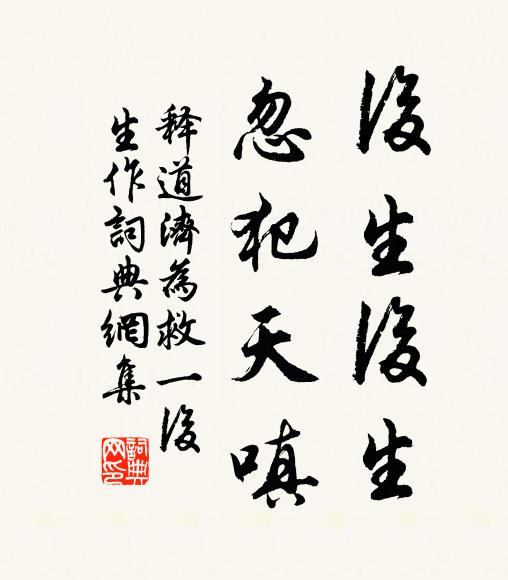 後生後生
忽犯天嗔
释道濟為救一後
生作詞典網集
詞典網印